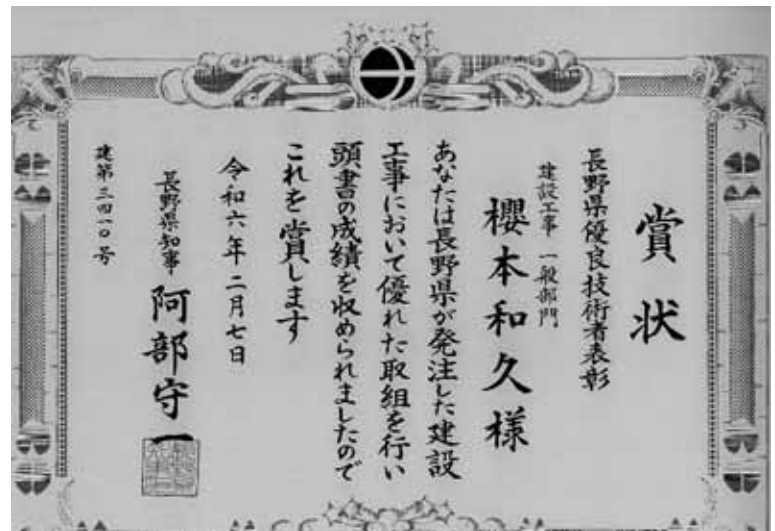 賞状
長野県優良技術者表彰
建設工事 一般部門
櫻本和久様
あなたは長野県が発注した建設
工事において優れた取組を行い
頭書の成績を収められましたので
これを賞します
令和六年二月七日
長野県知事 阿部守一
建第三四一〇号